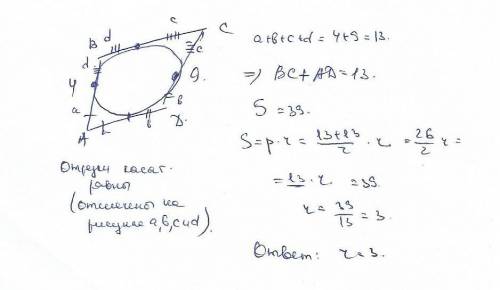 B d c C
d c
4 9.
a b
A b D.
Отрезки касат.
равны
(отмечены на
рисунке a, b, c и d).
a+b+c+d = 4+9 = 13.
⇒ BC + AD = 13.
S = 39.
S = p · r = 13+13/2 · r = 26/2 r =
= 13 · r = 39
r = 39/13 = 3.
Ответ: r = 3.